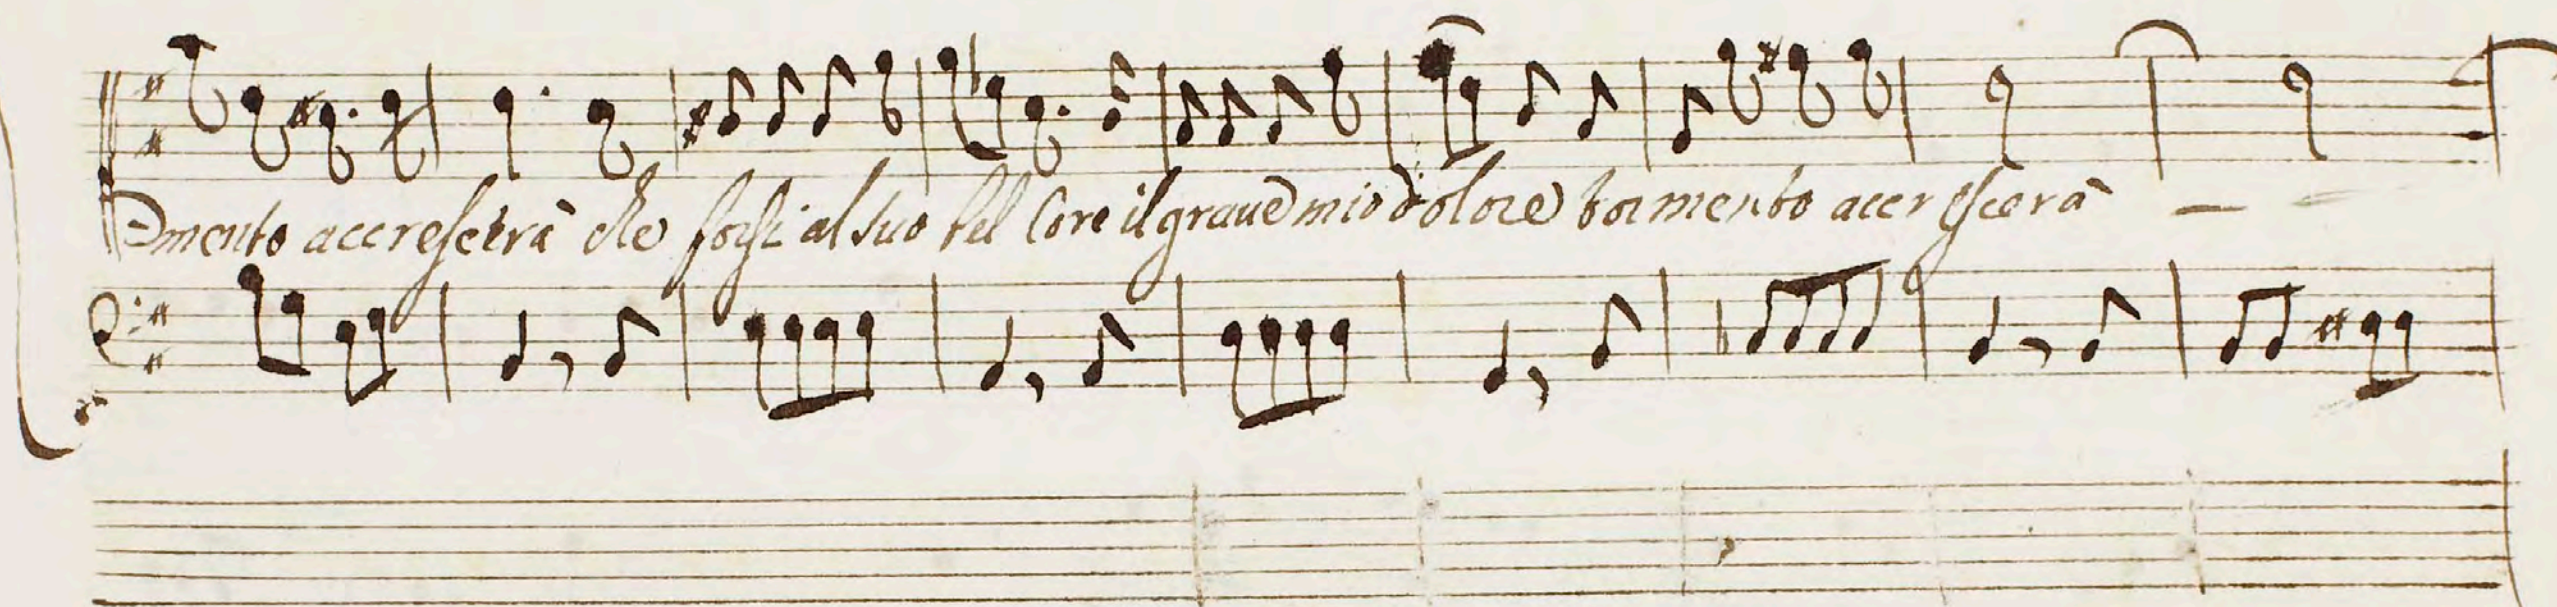 mento accrescerà che forsi al suo bel Core il graue mio dolore tormento accrescerà